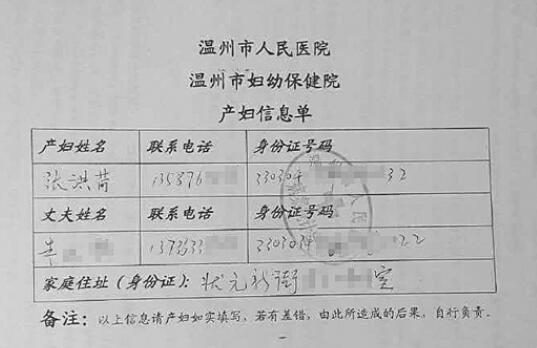 温州市人民医院
温州市妇幼保健院
产妇信息单
产妇姓名 联系电话 身份证号码
张洪 135876 330304 32
丈夫姓名 联系电话 身份证号码
137633 330303 22
家庭住址（身份证）：状元 街 室
备注：以上信息请产妇如实填写，若有差错，由此所造成的后果，自行负责。